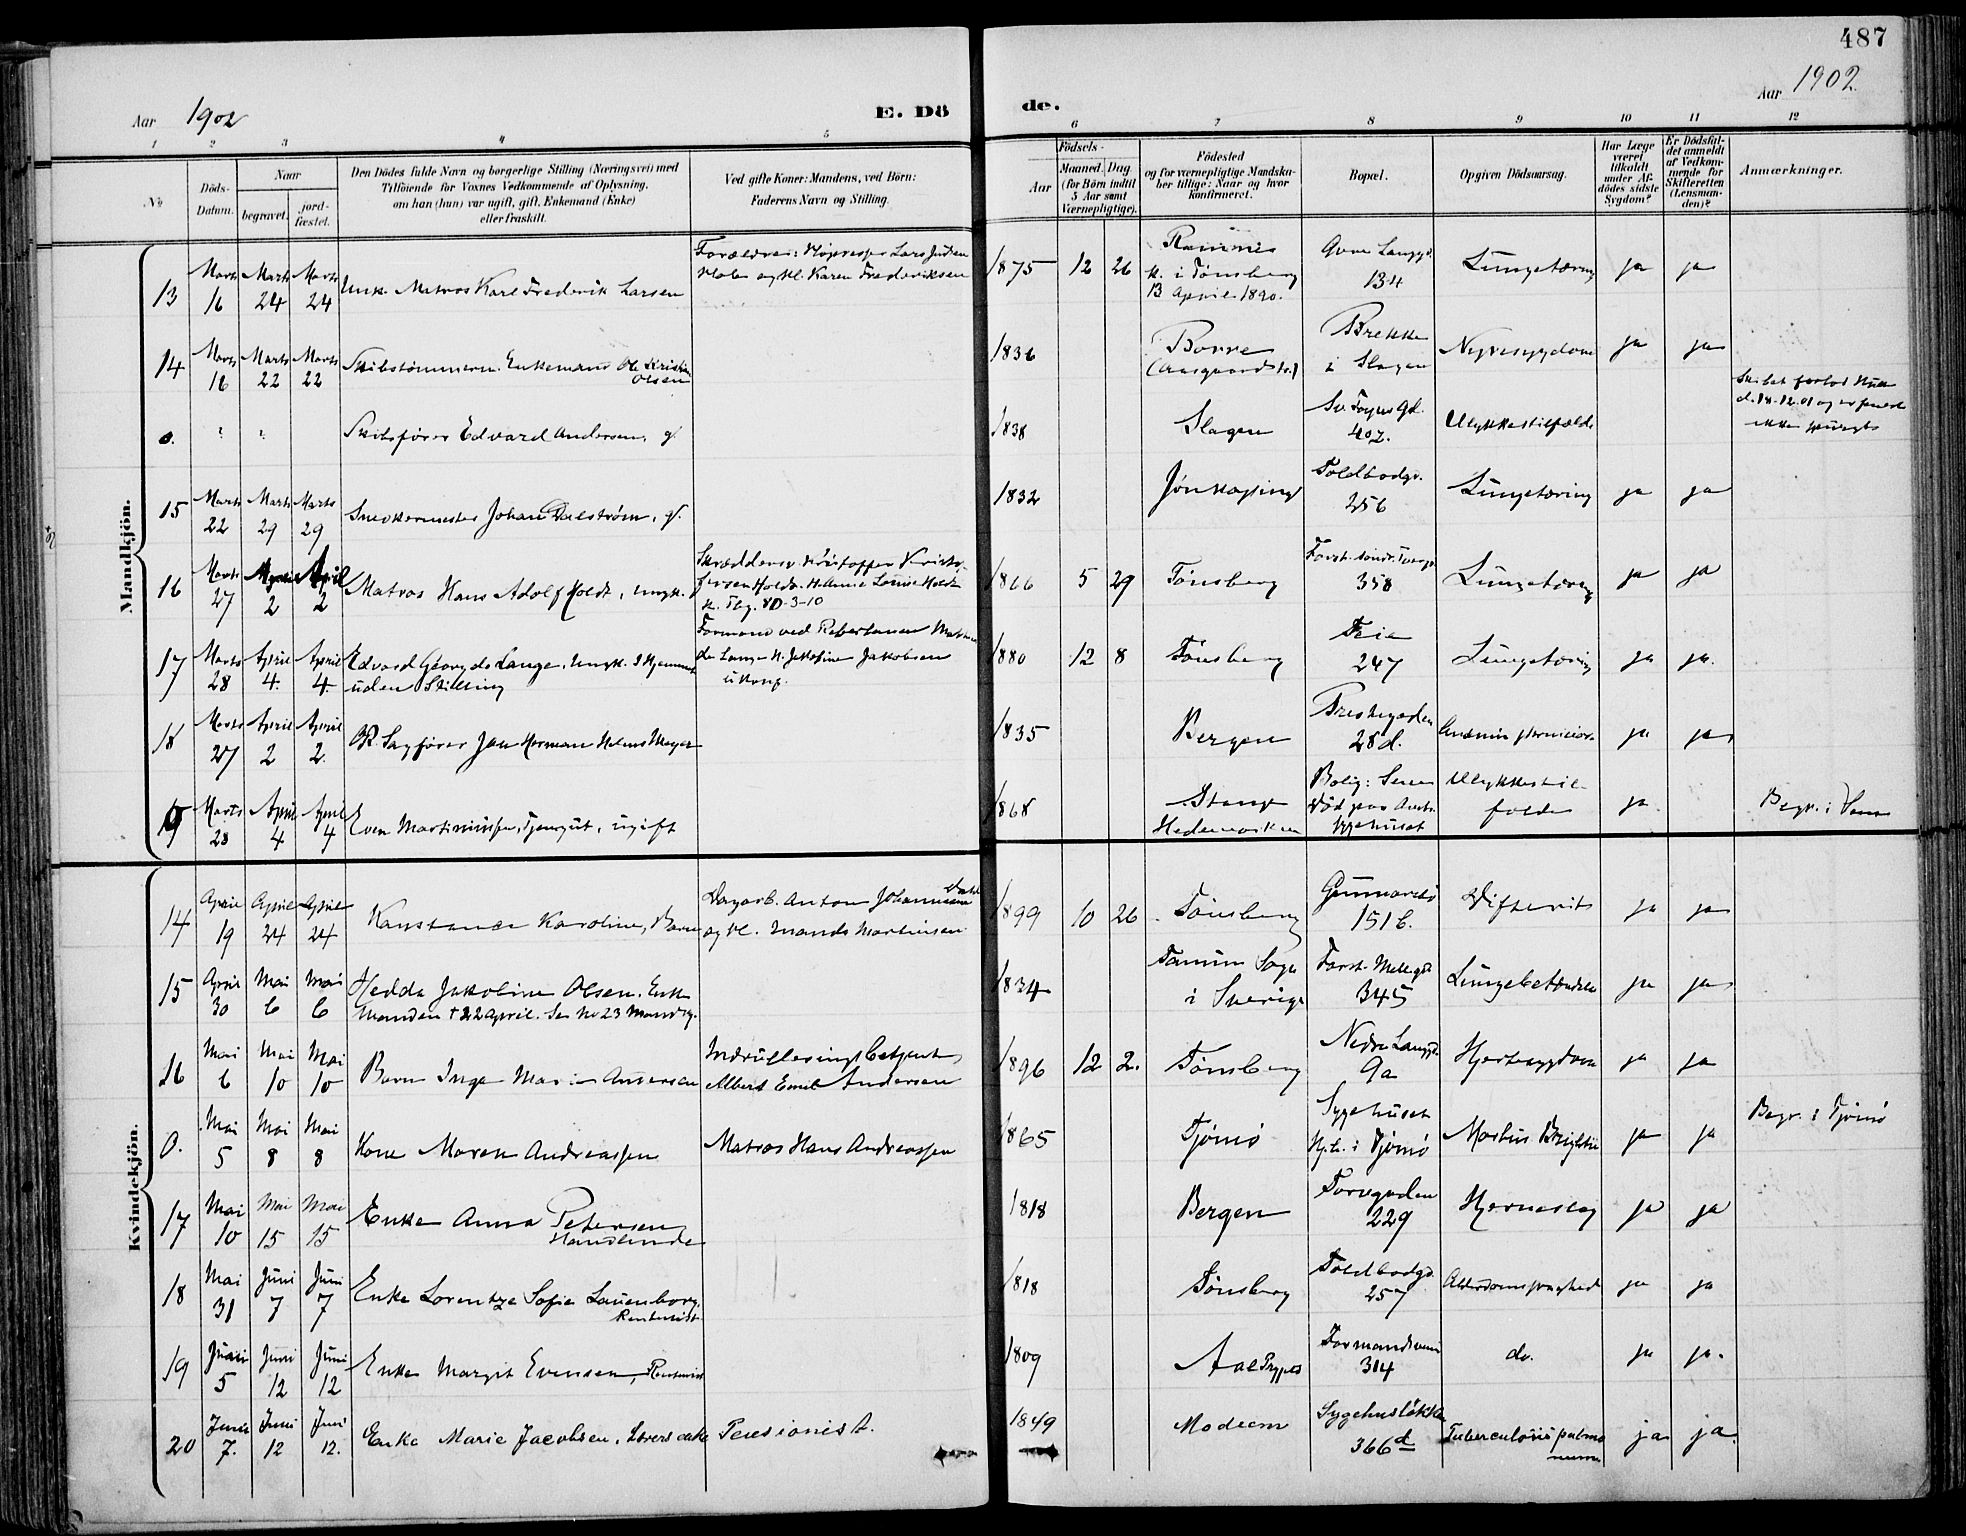 487
Aar 1902
E. Dö
de.
Aar 1902
1 2 3 4 5
6 7 8 9 10 11 12
No
Döds-Datum.
Naar
begravet.
jord-fæstet.
Den Dödes fulde Navn og borgerlige Stilling (Næringsvei) med
Tilföiende for Voxnes Vedkommende af Oplysning,
om han (hun) var ugift, gift, Enkemand (Enke)
eller fraskilt.
Ved gifte Koner: Mandens, ved Börn:
Faderens Navn og Stilling.
Födsels-
Aar
Maaned. Dag.
(for Börn indtil
5 Aar samt
Værnepligtige).
Födested
og for værnepligtige Mandska-
ber tillige: Naar og hvor
konfirmeret.
Bopæl.
Opgiven Dödsaarsag.
Har Læge
været
tilkaldt
under Af-
dödes sidste
Sygdom?
Er Dödsfal-
det anmeldt
af Vedkom-
mende for
Skifteretten
(Lensman-
den)?
Anmærkninger.
Mandkjön.
13 Marts 16 Marts 24 Marts 24 Ungk. Matros Karl Frederik Larsen
Karen Frederiksen
1875 12 26 Ramnes
k. i Tönsberg
13 April 1890.
134 Lungetæring ja ja
14 Marts 16 Marts 22 Marts 22 Skibstømmerm. Enkemand Ole Kristian
Olsen
1836 Borre
Brekke
i Slagen Nyresygdom ja ja
0. Skibsfører Edvard Andersen, g.
1838 Slagen Sv. Foyns Gd.
407. Ulykkestilfælde
15 Marts 22 Marts 29 Marts 29 Snedkermester Johan Dalström, g.
1832 Jönköping Toldbodgd.
256 Lungetæring ja ja
16 Marts 27 April 2 April 2 Matros Hans Adolf Holdt, ungk.
1866 5 29 Tönsberg 358 Lungetæring ja ja
17 Marts 28 April 4. April 4. Edvard Georg de Lange, Ungk. I Hjemmet
uden Stilling
1880 12 8 Tönsberg Feie
247 Lungetæring ja ja.
18 Marts 27 April 2 April 2. Sagförer Jan Herman Helms Meyer
1835 Bergen
28d. ja ja
19 Marts 28 April 4 April 4 Even Martiniussen, ugift
1868 Stange
Hedemarken
Bolig: Sem
Sygehuset Ulykkestil-
fælde ja Begr. i Sem
Kvindekjön.
14 April 19 April 24 April 24 Konstance Karoline, Barn
Dagarb. Anton Johannesen
1899 10 26 Tönsberg
151 b. Difterit ja ja
15 April 30 Mai 6 Mai 6 Hedda Jakobine Olsen. Enke
Manden † 22 April. Se No 23 Mandkj.
1834 Tanum Sogn
i Sverige
345 Lungebetændelse ja ja
16 Mai 6 Mai 10 Mai 10 Barn Inga Marie Andersen
Indrulleringsbetjent
Albert Emil Andersen
1896 12 2. Tönsberg Nedre Langgd.
9a Hjertesygdom ja ja
0. Mai 5 Mai 8 Mai 8 Kone Maren Andreassen Matros Hans Andreassen
1865 Tjömö Sygehuset
Hjh. i Tjömö Morbus Brightii ja ja Begr. i Tjömö
17 Mai 10 Mai 15 Mai 15 Enke Anna Petersen
Handlende
1818 Bergen Torvgaden
229 Hjerneslag ja ja
18 Mai 31 Juni 7 Juni 7 Enke Lorentze Sofie Lauenborg.
Rentenist
1818 Tönsberg Toldbodgd.
257 Alderdomssvaghed ja ja
19 Juni 5 Juni 12 Juni 12 Enke Margit Evensen, Rentenist
1809 Aal
Formandsveien
314 do. ja ja.
20 Juni 7. Juni 12 Juni 12. Enke Marie Jacobsen, Pensionist.
1849 Modum Sygehuslökken
366d Tuberculosis pulmo
num ja ja.